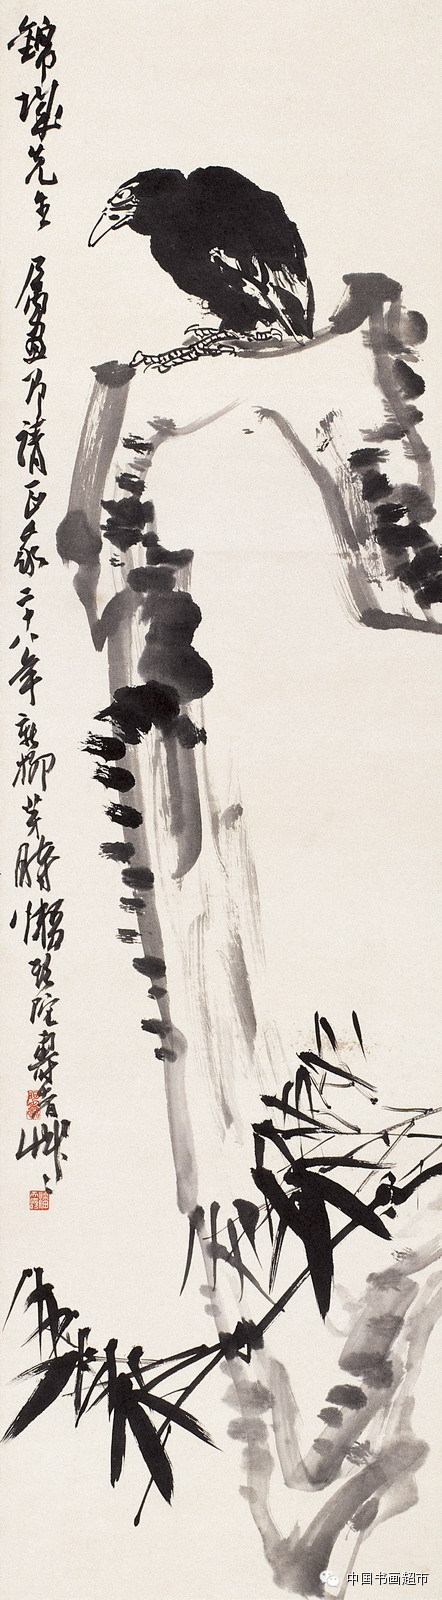 錦城先生 屬畫即請正 二十八年新柳芽時懶頭陀壽者艸艸
中国书画超市